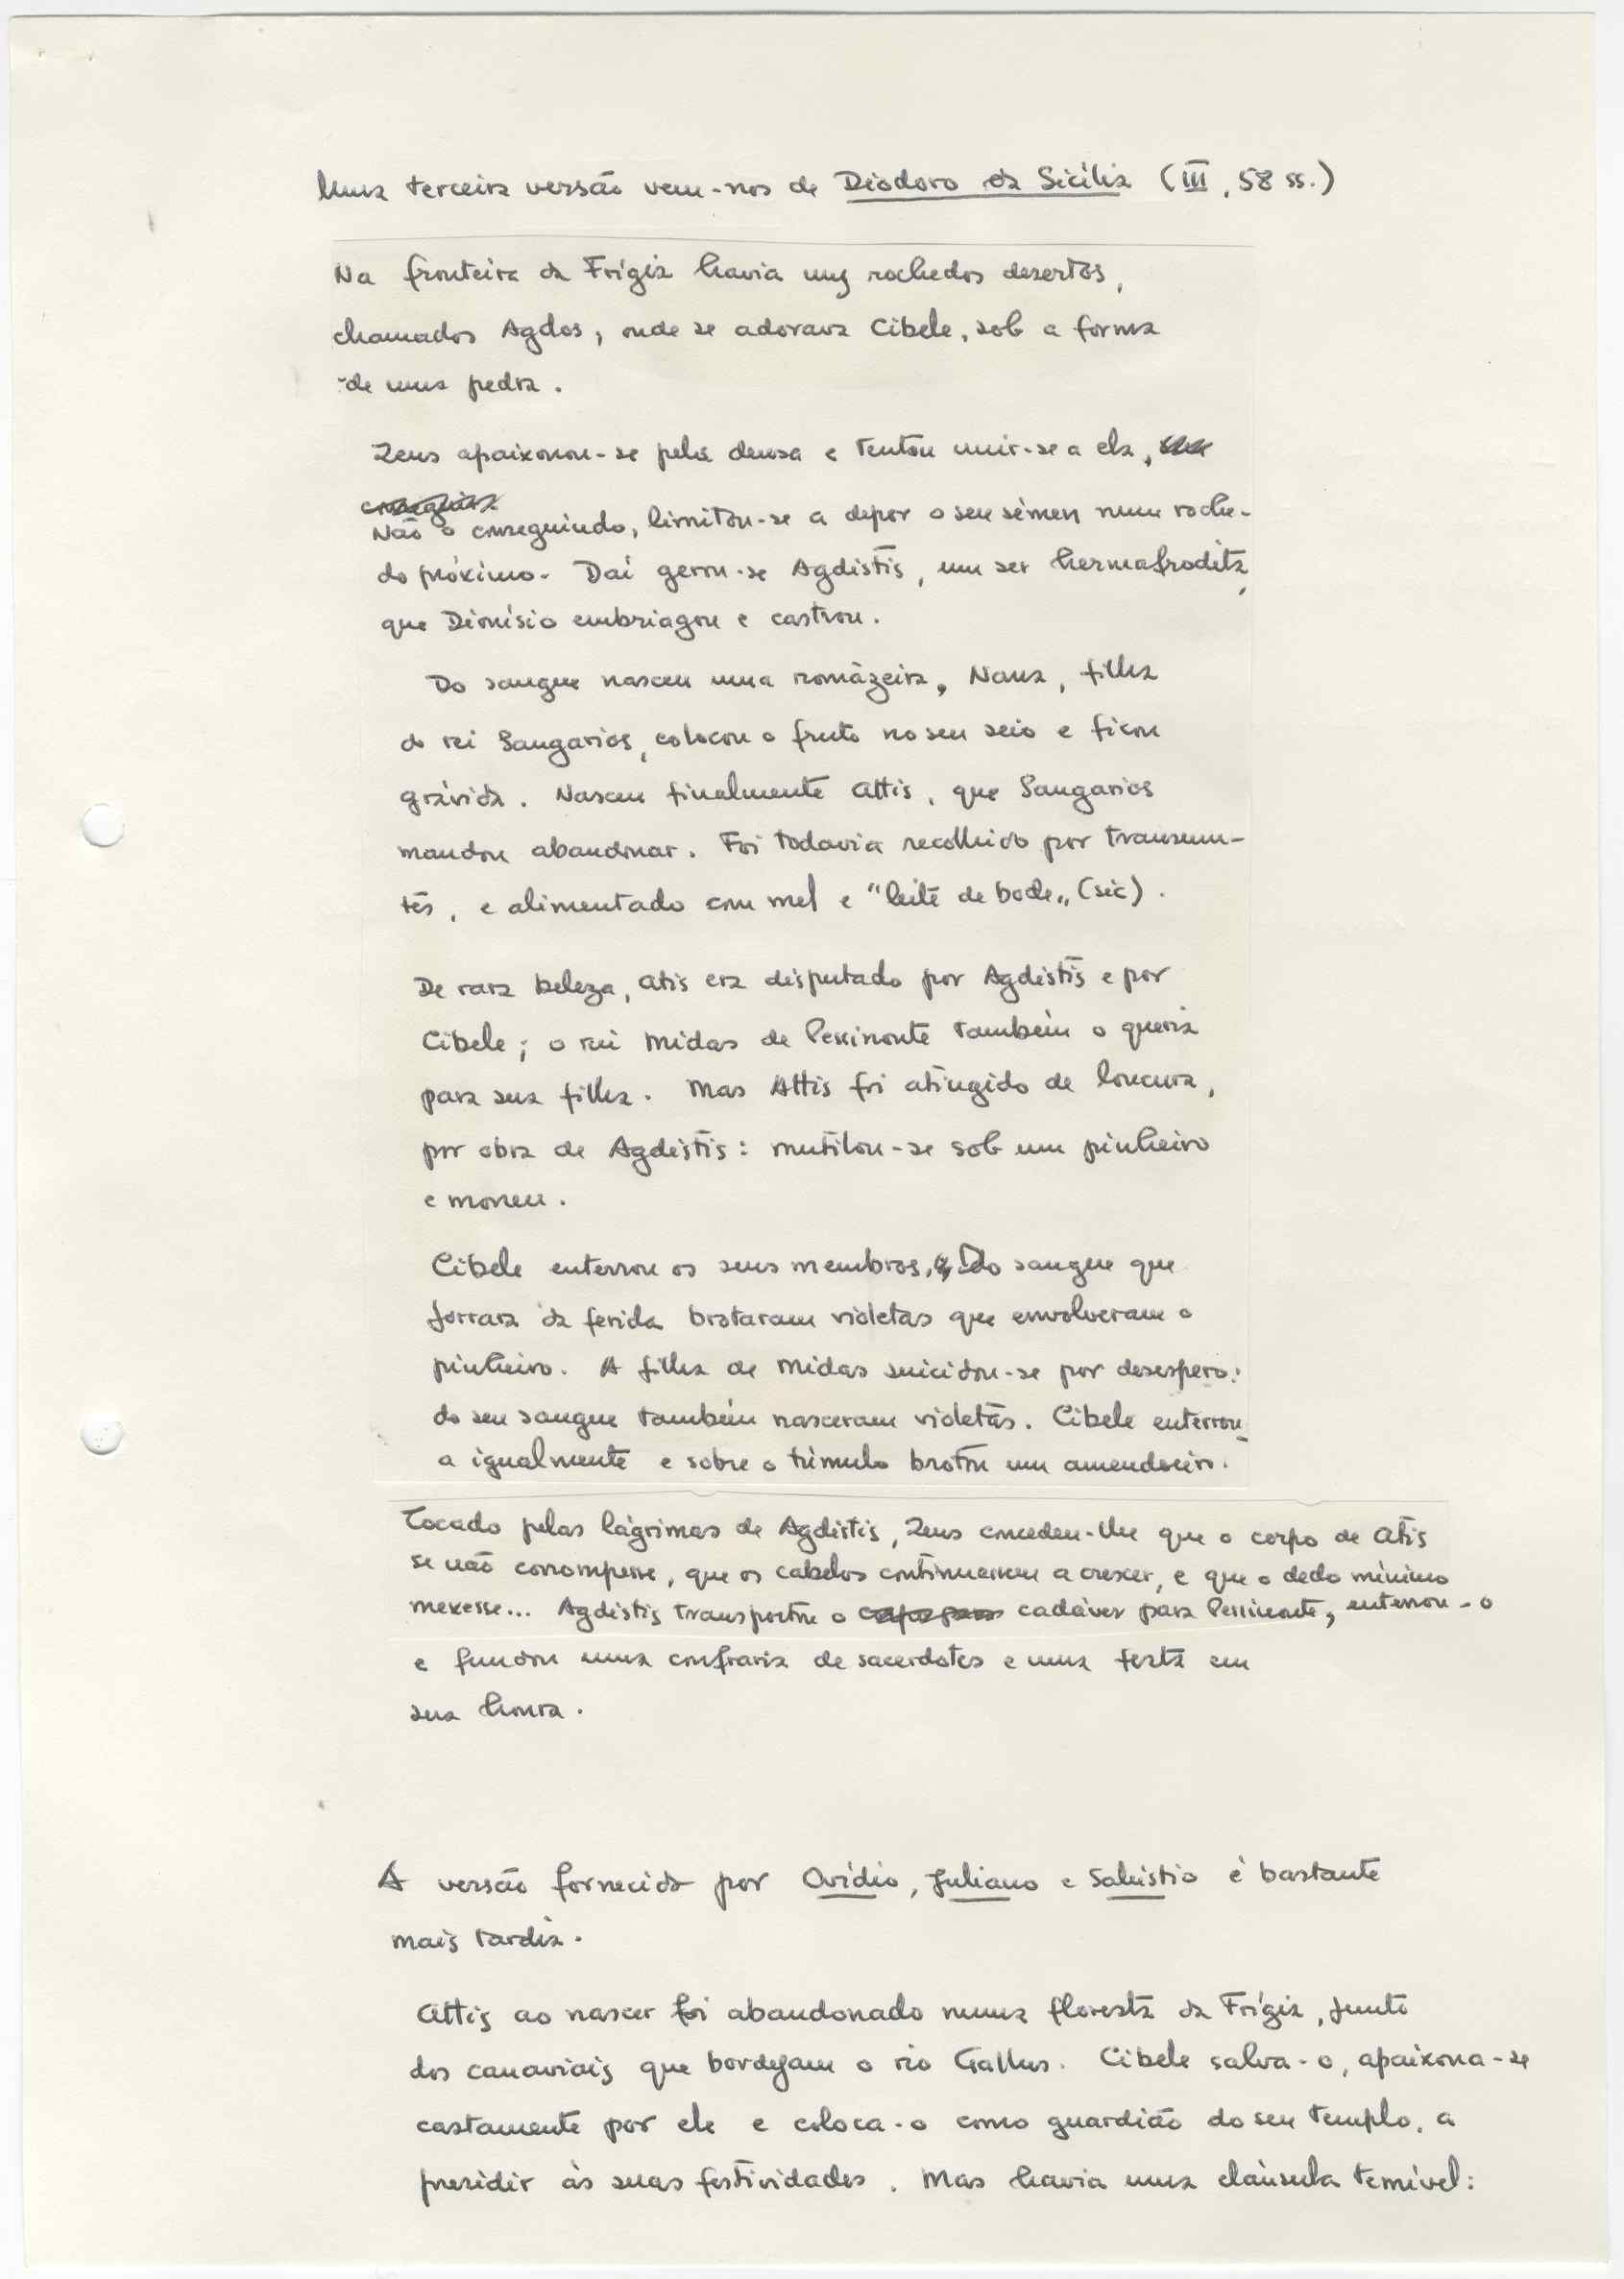 Uma terceira versão vem-nos de Diodoro da Sicília (III, 58 ss.)
Na fronteira da Frígia havia uns rochedos desertos,
chamados Agdos, onde se adorava Cibele, sob a forma
de uma pedra.
Zeus apaixonou-se pela deusa e tentou unir-se a ela,
Não o conseguindo, limitou-se a depor o seu sémen num roche-
do próximo. Daí gerou-se Agdistis, um ser hermafrodita,
que Dionísio embriagou e castrou.
Do sangue nasceu uma romãzeira. Nana, filha
do rei Sangarios, colocou o fruto no seu seio e ficou
grávida. Nasceu finalmente Attis, que Sangarios
mandou abandonar. Foi todavia recolhido por transeun-
tes, e alimentado com mel e "leite de bode" (sic).
De rara beleza, Atis era disputado por Agdistis e por
Cibele; o rei Midas de Pessinonte também o queria
para sua filha. Mas Attis foi atingido de loucura,
por obra de Agdistis: mutilou-se sob um pinheiro
e morreu.
Cibele enterrou os seus membros. Do sangue que
jorrara da ferida brotaram violetas que envolveram o
pinheiro. A filha de Midas suicidou-se por desespero:
do seu sangue também nasceram violetas. Cibele enterrou-
a igualmente e sobre o túmulo brotou um amendoeiro.
Tocado pelas lágrimas de Agdistis, Zeus concedeu-lhe que o corpo de Atis
se não corrompesse, que os cabelos continuassem a crescer, e que o dedo mínimo
mexesse... Agdistis transportou o cadáver para Pessinonte, enterrou-o
e fundou uma confraria de sacerdotes e uma festa em
sua honra.
A versão fornecida por Ovídio, Juliano e Salústio é bastante
mais tardia.
Attis ao nascer foi abandonado numa floresta da Frígia, junto
dos canaviais que bordejam o rio Gallus. Cibele salva-o, apaixona-se
castamente por ele e coloca-o como guardião do seu templo, a
presidir às suas festividades. Mas havia uma cláusula temível: